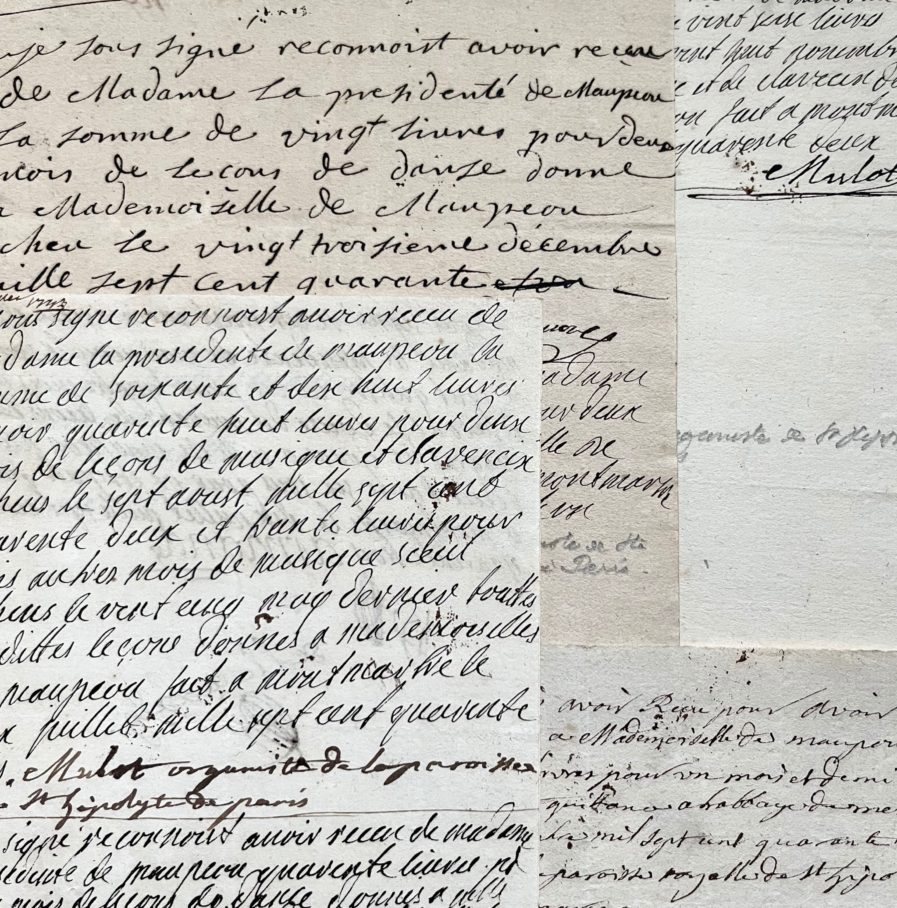 je sous signe reconnoist avoir receu
de Madame la presidente de Maupeou
la somme de vingt livres pour deux
mois de lecons de danse donne
a Mademoiselle de Maupeou
echeu le vingt troisieme decembre
mille sept cent quarante
sous signe reconnoist avoir receu de
dame la presedente de maupeou la
somme de soixante et dix huit livres
savoir quarente huit livres pour deux
mois de leçons de musique et clavencix
le sept aoust mille sept cent
quarente deux et trante livres pour
autres mois de musique
le vent cinq may dernier touttes
dittes leçons donnes a mademoiselles
maupeou fait a montmartre le
juillet mille sept cent quarente
Mulot organiste de la paroisse
St Hipolyte de paris
signe reconnoist avoir receu de madame
presedente de maupeou quarente livres
mois de leçons de danse donnes a
vent seise livres
vent huit novembre
et de clavecin
fait a
quarente deux
Mulot
organiste de St Hypo
adame
pour deux
elle de
montmartre
de Ste
Paris.
avoir Receu pour avoir
a Mademoiselle de maupeou
livres pour un mois et demi
quittance a labbaye de
mil sept cent quarante
paroisse royalle de St Hipo